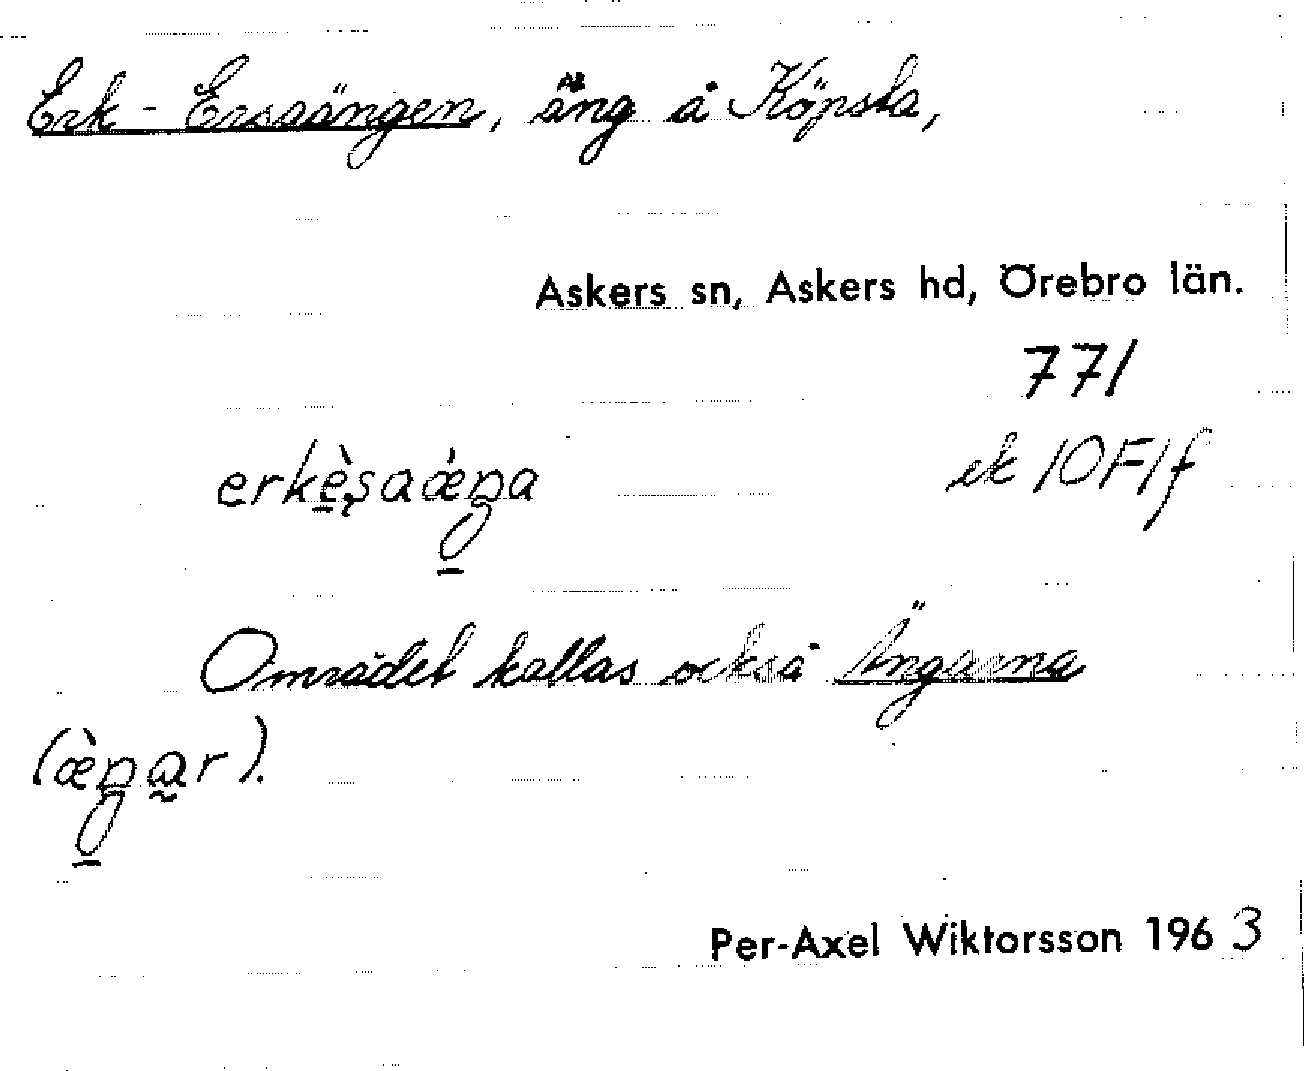 Erk-Ersaängen, äng å Köpsta,
Askers sn, Askers hd, Örebro län.
771
erkèṣaǽŋa
ek 10F1f
Området kallas också Ängarna
(æ̀ŋar).
Per-Axel Wiktorsson 1963